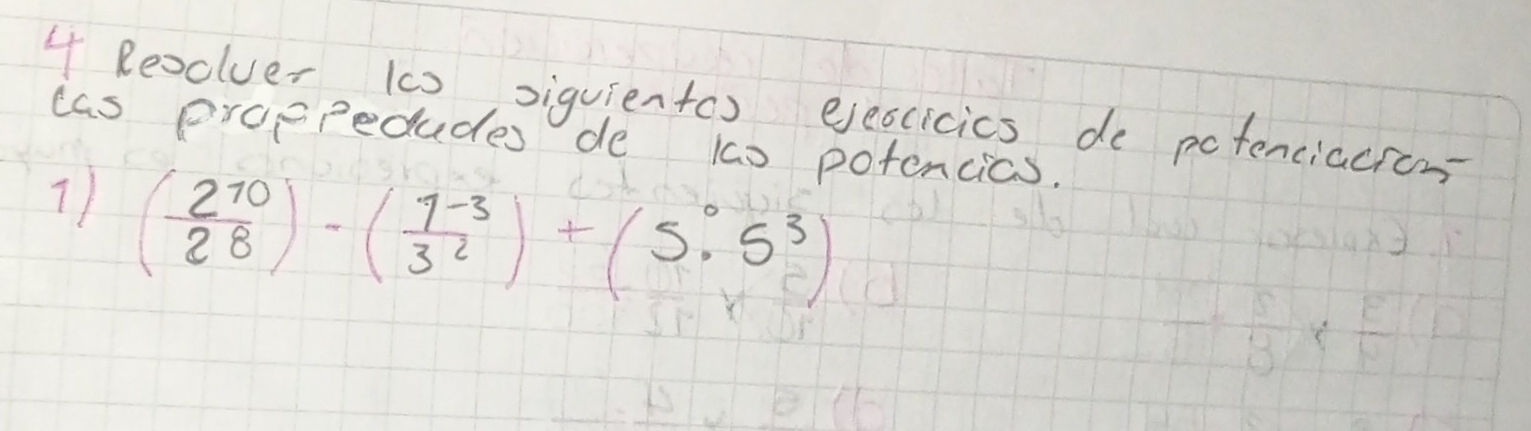 4 Resolver las siguientes ejercicios de potenciacion
las propiedades de las potencias.
1) (2^10/2^8) - (1^-3/3^2) + (5^0 . 5^3)